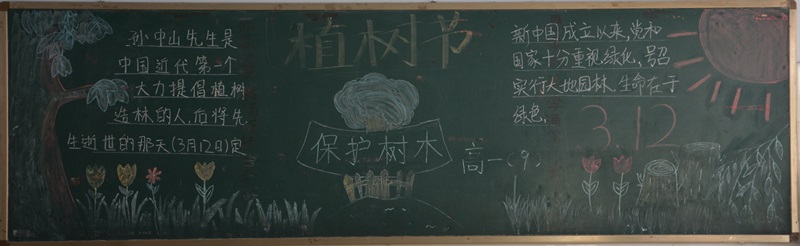 孙中山先生是
中国近代第一个
大力提倡植树
造林的人,后将先
生逝世的那天(3月12日)定
植树节
保护树木
高一(9)
新中国成立以来,党和
国家十分重视绿化,号召
实行大地园林.生命在于
绿色,
3.12